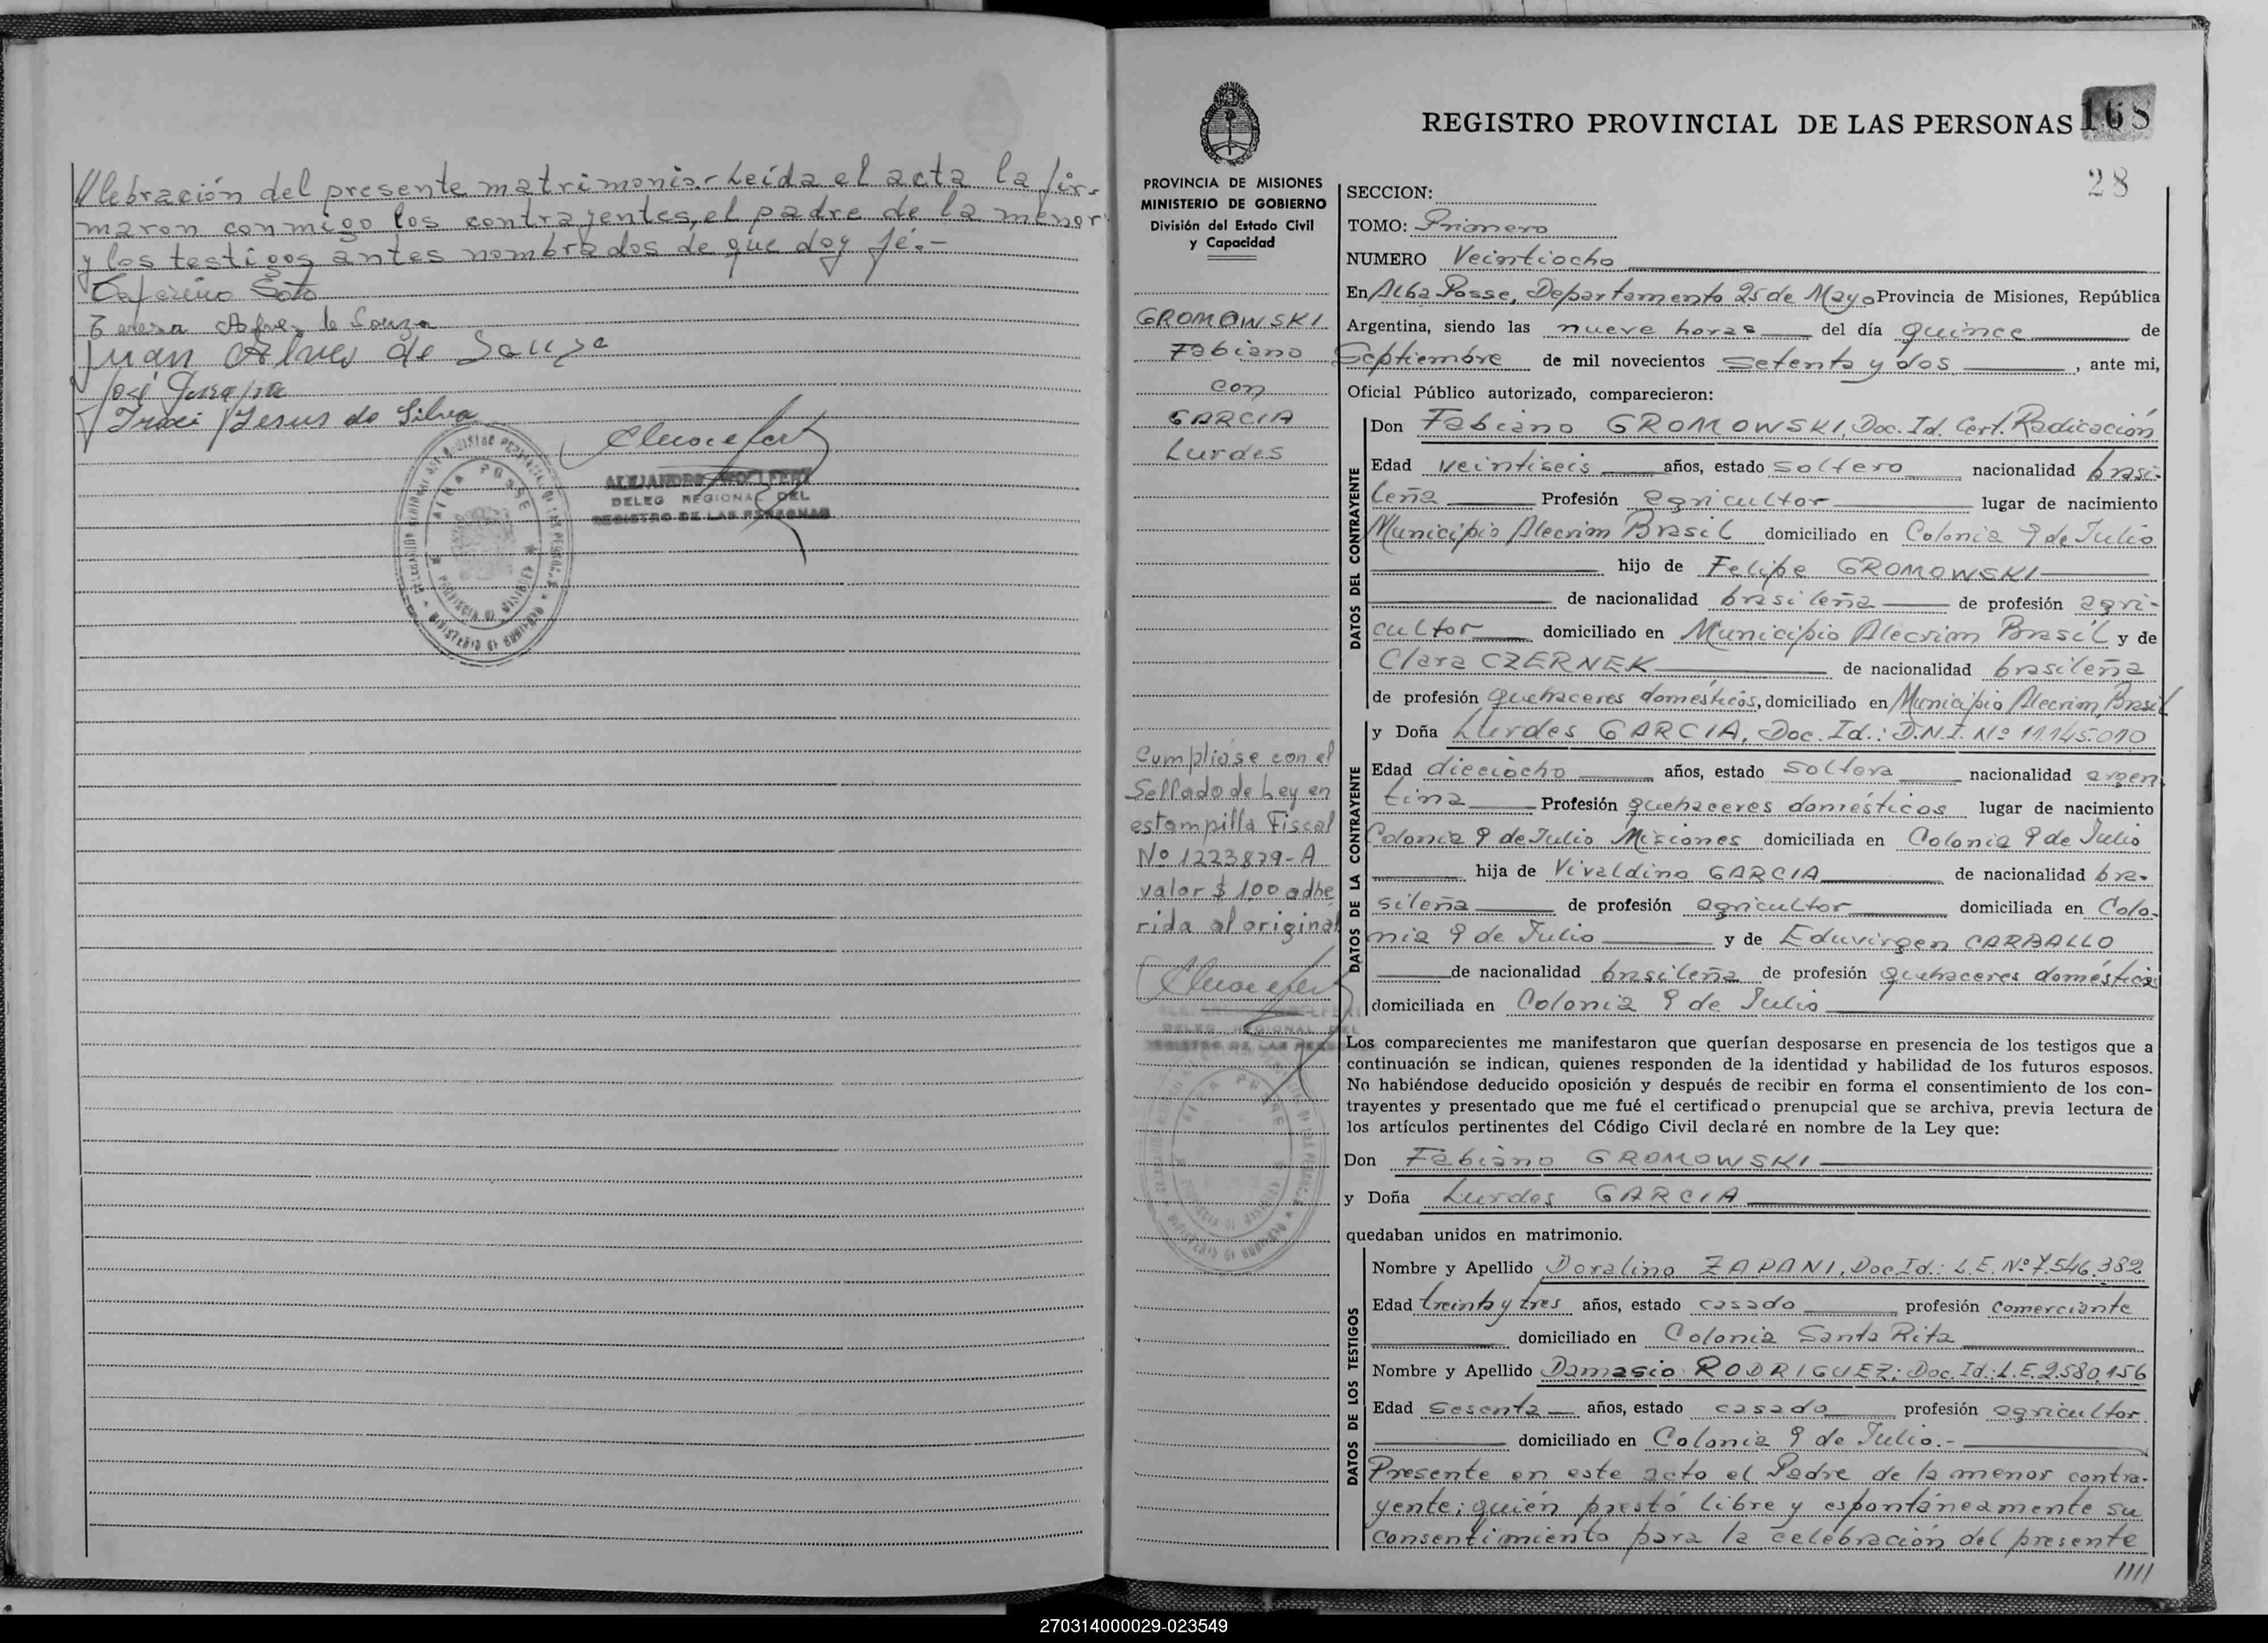 lebración del presente matrimonio.- Leída el acta la fir-
maron conmigo los contrayentes, el padre de la menor
y los testigos antes nombrados de que doy fé.-
Soto
Teresa Alvez de Souza
Juan Alves de Souza
José
Jesus da Silva
ALEJANDRO
DELEG REGIONAL DEL
REGISTRO DE LAS PERSONAS
ALBA POSSE
168
REGISTRO PROVINCIAL DE LAS PERSONAS
28
PROVINCIA DE MISIONES
MINISTERIO DE GOBIERNO
División del Estado Civil
y Capacidad
GROMOWSKI
Fabiano
con
GARCIA
Lurdes
Cumplióse con el
Sellado de Ley en
estampilla Fiscal
Nº 1223829-A
valor $ 1,00 adhe
rida al original
DELEG REGIONAL DEL
REGISTRO DE LAS PERSONAS
SECCION:
TOMO: Primero
NUMERO Veintiocho
En Alba Posse, Departamento 25 de Mayo Provincia de Misiones, República
Argentina, siendo las nueve horas del día quince de
Septiembre de mil novecientos setenta y dos, ante mi,
Oficial Público autorizado, comparecieron:
DATOS DEL CONTRAYENTE
Don Fabiano GROMOWSKI, Doc. Id. Cert. Radicación
Edad veintiseis años, estado soltero nacionalidad brasi-
leña Profesión agricultor lugar de nacimiento
Municipio Alecrim Brasil domiciliado en Colonia 9 de Julio
hijo de Felipe GROMOWSKI
de nacionalidad brasileña de profesión agri-
cultor domiciliado en Municipio Alecrim Brasil y de
Clara CZERNEK de nacionalidad brasileña
de profesión quehaceres domésticos, domiciliado en Municipio Alecrim, Brasil
DATOS DE LA CONTRAYENTE
y Doña Lurdes GARCIA, Doc. Id.: D.N.I. Nº 11.145.010
Edad dieciocho años, estado soltera nacionalidad argen
tina Profesión quehaceres domésticos lugar de nacimiento
Colonia 9 de Julio Misiones domiciliada en Colonia 9 de Julio
hija de Vivaldino GARCIA de nacionalidad bra-
sileña de profesión agricultor domiciliada en Colo-
nia 9 de Julio y de Eduvirgen CARBALLO
de nacionalidad brasileña de profesión quehaceres domésticos
domiciliada en Colonia 9 de Julio
Los comparecientes me manifestaron que querían desposarse en presencia de los testigos que a
continuación se indican, quienes responden de la identidad y habilidad de los futuros esposos.
No habiéndose deducido oposición y después de recibir en forma el consentimiento de los con-
trayentes y presentado que me fué el certificado prenupcial que se archiva, previa lectura de
los artículos pertinentes del Código Civil declaré en nombre de la Ley que:
Don Fabiano GROMOWSKI
y Doña Lurdes GARCIA
quedaban unidos en matrimonio.
DATOS DE LOS TESTIGOS
Nombre y Apellido Doralino ZAPANI, Doc Id.: L.E. Nº 7.546.382
Edad treinta y tres años, estado casado profesión comerciante
domiciliado en Colonia Santa Rita
Nombre y Apellido Damasio RODRIGUEZ; Doc. Id.: L.E. 2.580.156
Edad sesenta años, estado casado profesión agricultor
domiciliado en Colonia 9 de Julio.-
Presente en este acto el Padre de la menor contra-
yente; quién prestó libre y espontáneamente su
consentimiento para la celebración del presente
////
270314000029-023549